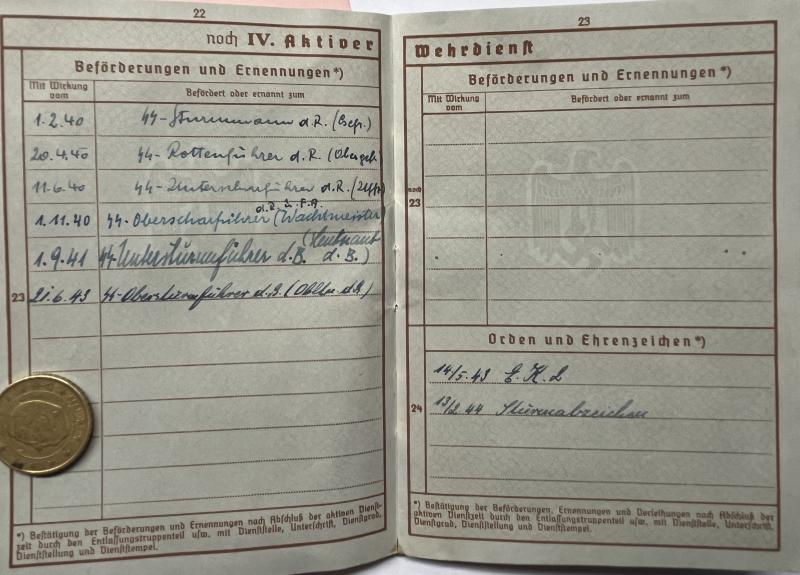 22
noch IV. Aktiver
Beförderungen und Ernennungen*)
Mit Wirkung vom
Befördert oder ernannt zum
1.2.40 SS-Sturmmann d.R. (Gefr.)
20.4.40 SS-Rottenführer d.R. (Obergefr.
11.6.40 SS-Unterscharführer d.R. (Uffz
d.R. u. F.A.
1.11.40 SS-Oberscharführer (Wachtmeister
1.9.41 SS-Untersturmführer d.B. (Leutnant d.B.)
23 21.6.43 SS-Obersturmführer d.R. (Obltn. d.R.)
*) Bestätigung der Beförderungen und Ernennungen nach Abschluß der aktiven Dienst-
zeit durch den Entlassungstruppenteil usw. mit Dienststelle, Unterschrift, Dienstgrad,
Dienststellung und Dienststempel.
23
Wehrdienst
Beförderungen und Ernennungen*)
Mit Wirkung vom
Befördert oder ernannt zum
noch
23
Orden und Ehrenzeichen*)
14/5.43 E.K.2
24 13/2.44 Sturmabzeichen
*) Bestätigung der Beförderungen, Ernennungen und Verleihungen nach Abschluß der
aktiven Dienstzeit durch den Entlassungstruppenteil usw. mit Dienststelle, Unterschrift,
Dienstgrad, Dienststellung und Dienststempel.